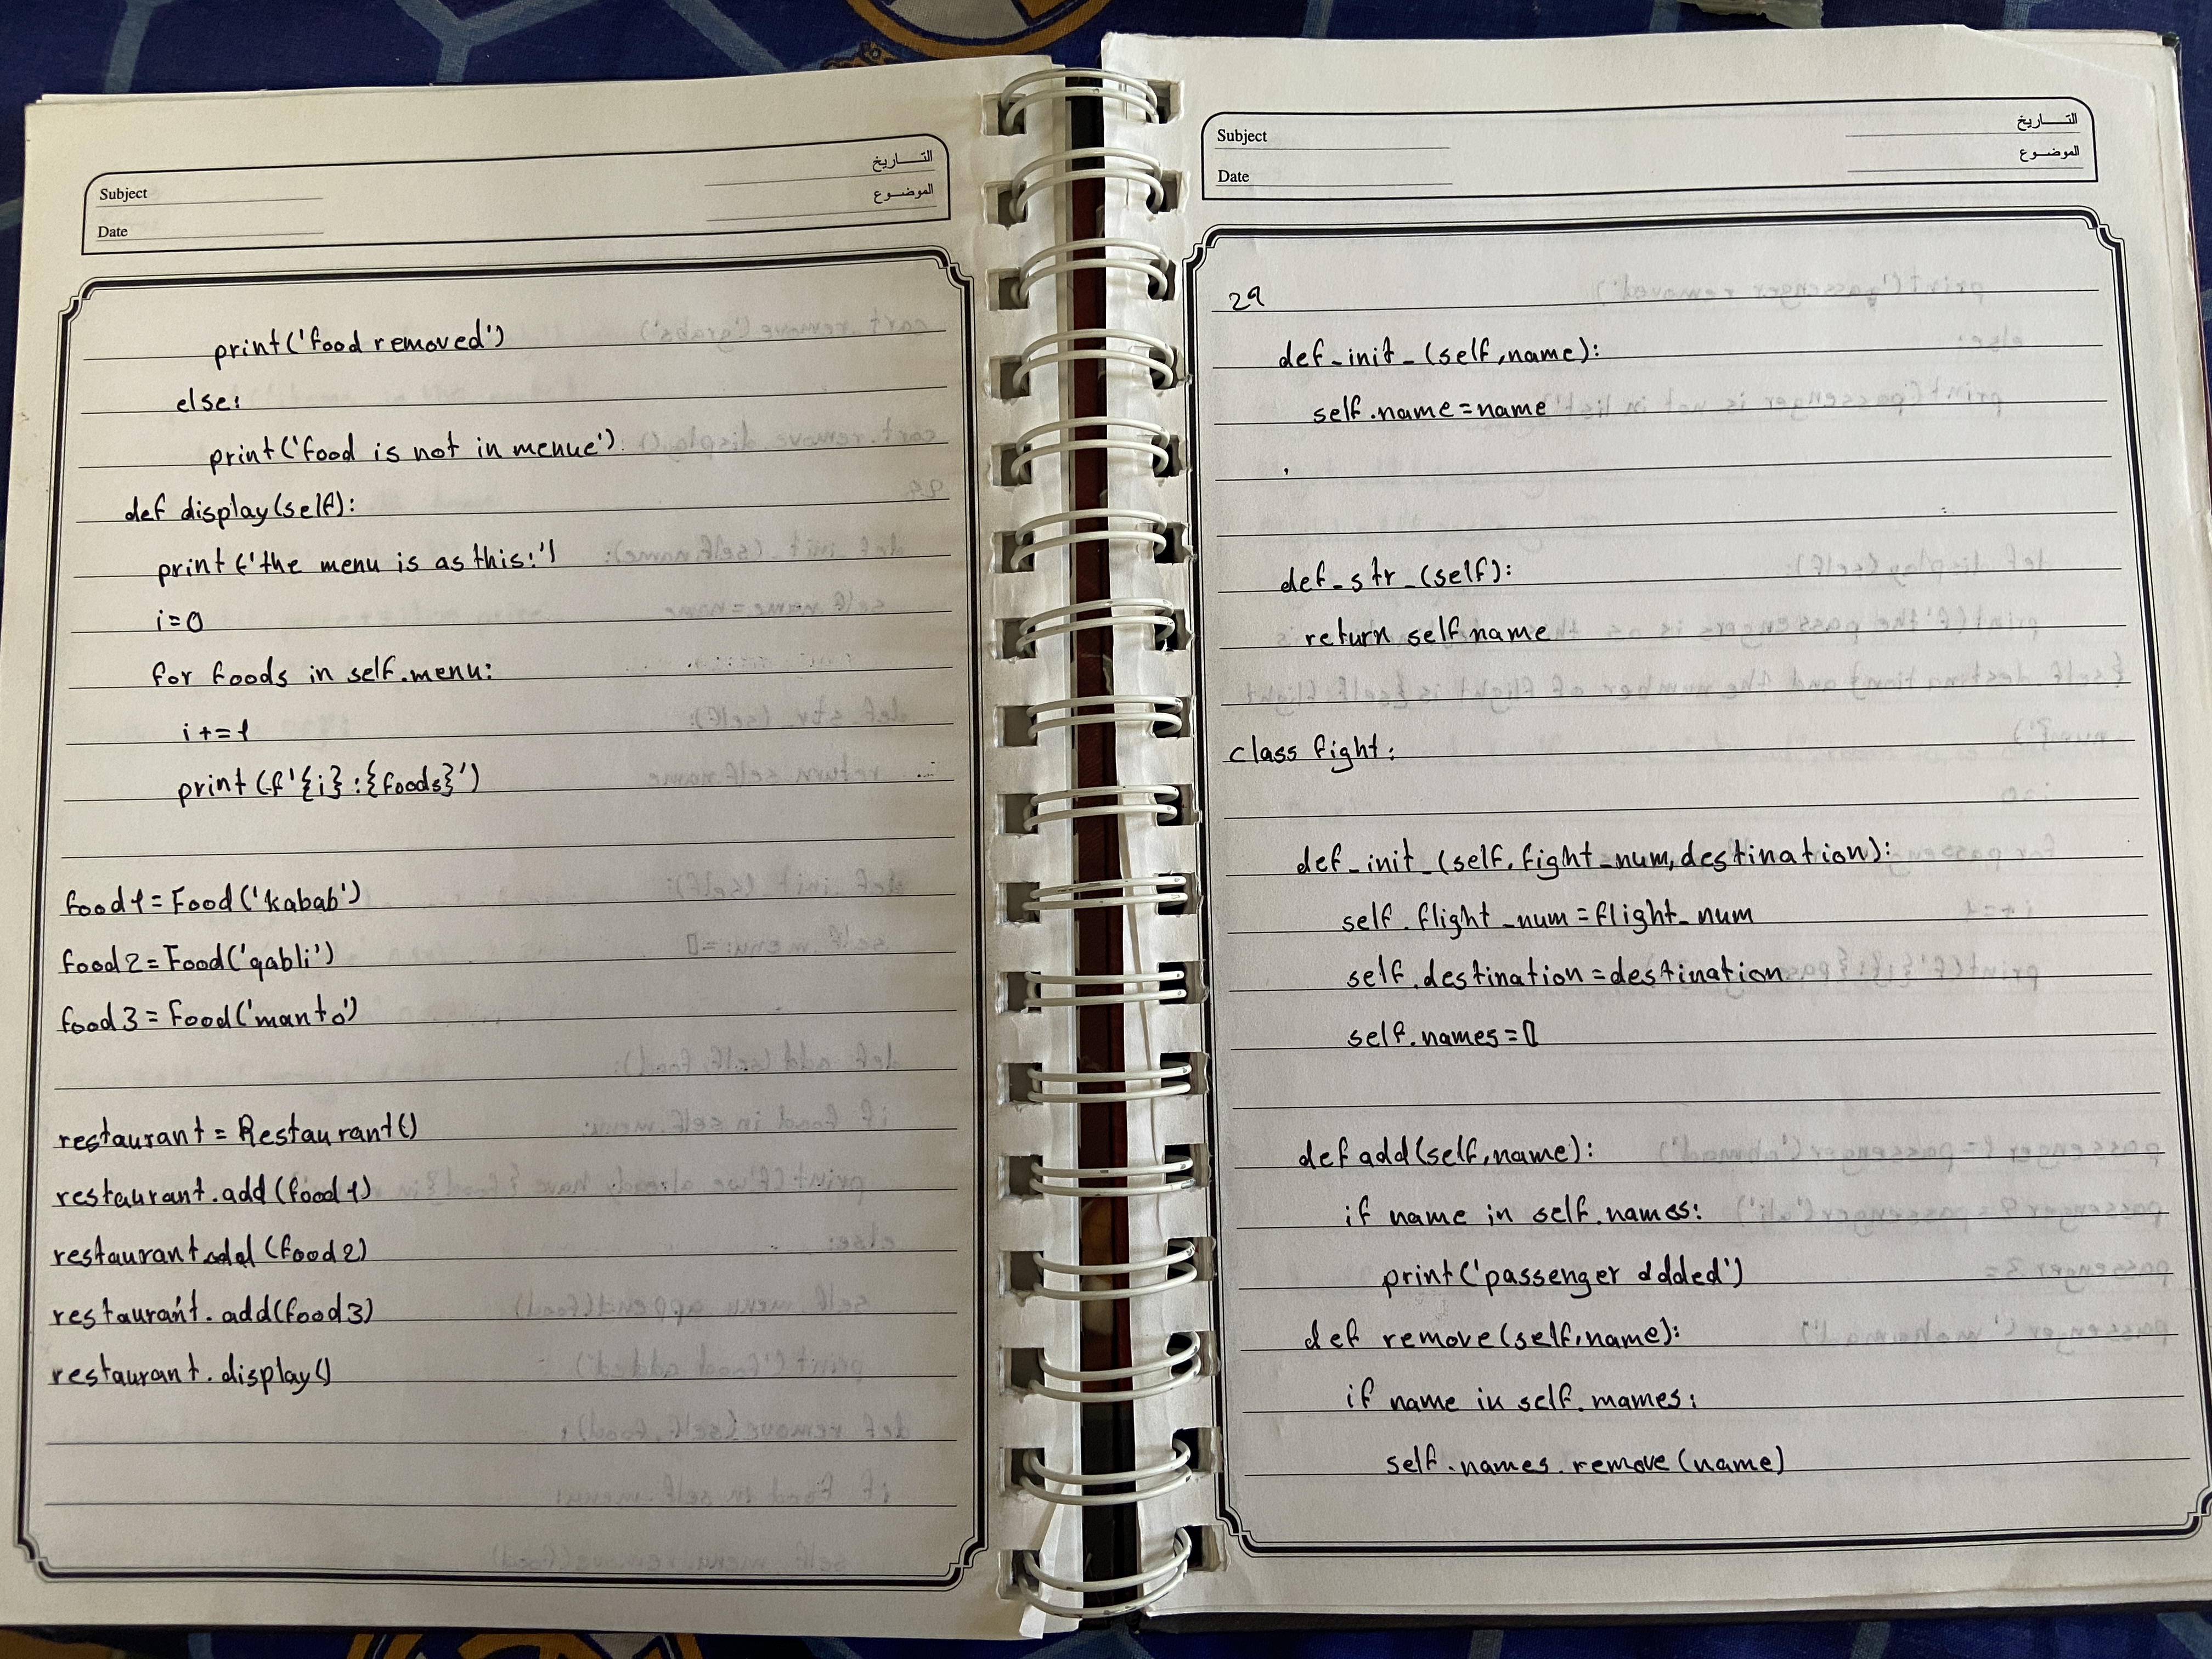 Subject
Date
التــاريخ
الموضوع
print('food removed')
else:
print('food is not in menue')
def display(self):
print('the menu is as this:')
i=0
for foods in self.menu:
i+=1
print(f'{i}:{foods}')
food1=Food('kabab')
food2=Food('qabli')
food3=Food('manto')
restaurant=Restaurant()
restaurant.add(food1)
restaurant.add(food2)
restaurant.add(food3)
restaurant.display()
Subject
Date
التــاريخ
الموضوع
29
def_init_(self,name):
self.name=name
def_str_(self):
return self.name
class fight:
def_init_(self,fight_num,destination):
self.flight_num=flight_num
self.destination=destination
self.names=[]
def add(self,name):
if name in self.names:
print('passenger added')
def remove(self,name):
if name in self.names:
self.names.remove(name)